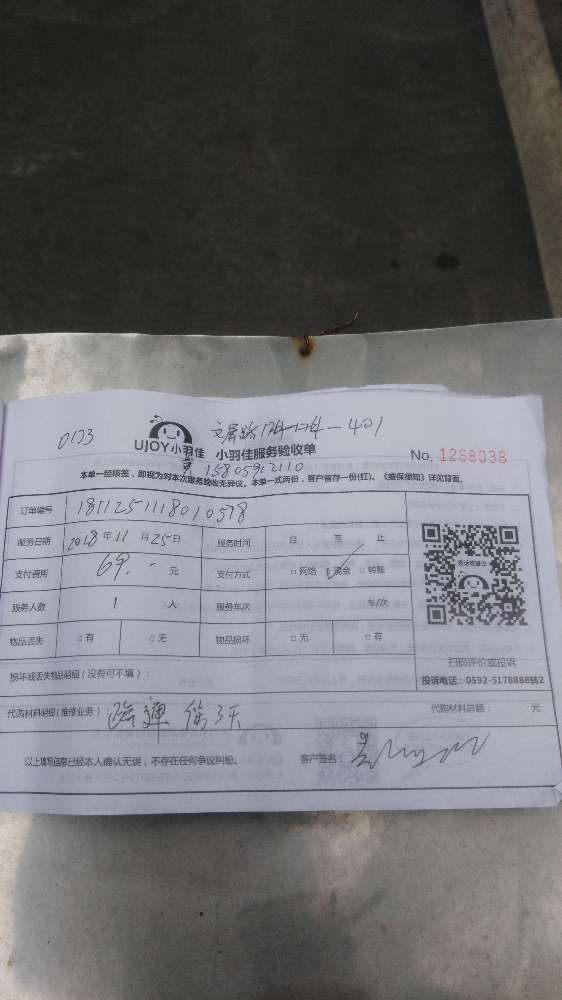 D173
文屏路 174-174-401
UJOY小羽佳 小羽佳服务验收单 No. 1268038
吴 15805912110
本单一经核签，即视为对本次服务验收无异议。本单一式两份，客户留存一份(红)。《维保须知》详见背面。
订单编号 1811251118010598
服务日期 2018年11月25日 服务时间 自 至 止
支付费用 69.- 元 支付方式 □网络 ✓现金 □转账
服务人数 1 人 服务车次 车/次
物品丢失 □有 □无 物品损坏 □无 □有
扫码评价或投诉
投诉电话：0592-5178888转2
损坏或丢失物品明细（没有可不填）：
代购材料明细(维修业务)： 疏通 保3天 代购材料总额： 元
以上填写信息已经本人确认无误，不存在任何争议纠纷。 客户签名：